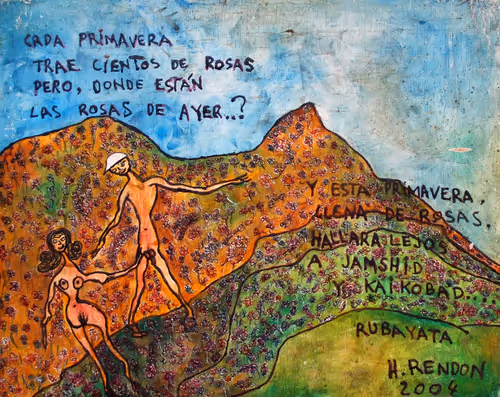 CADA PRIMAVERA
TRAE CIENTOS DE ROSAS
PERO, DONDE ESTÁN
LAS ROSAS DE AYER..?
Y ESTA PRIMAVERA,
LLENA DE ROSAS.
HALLARA LEJOS
A JAMSHID
Y KAIKOBAD....
RUBAYATA
H. RENDON
2004